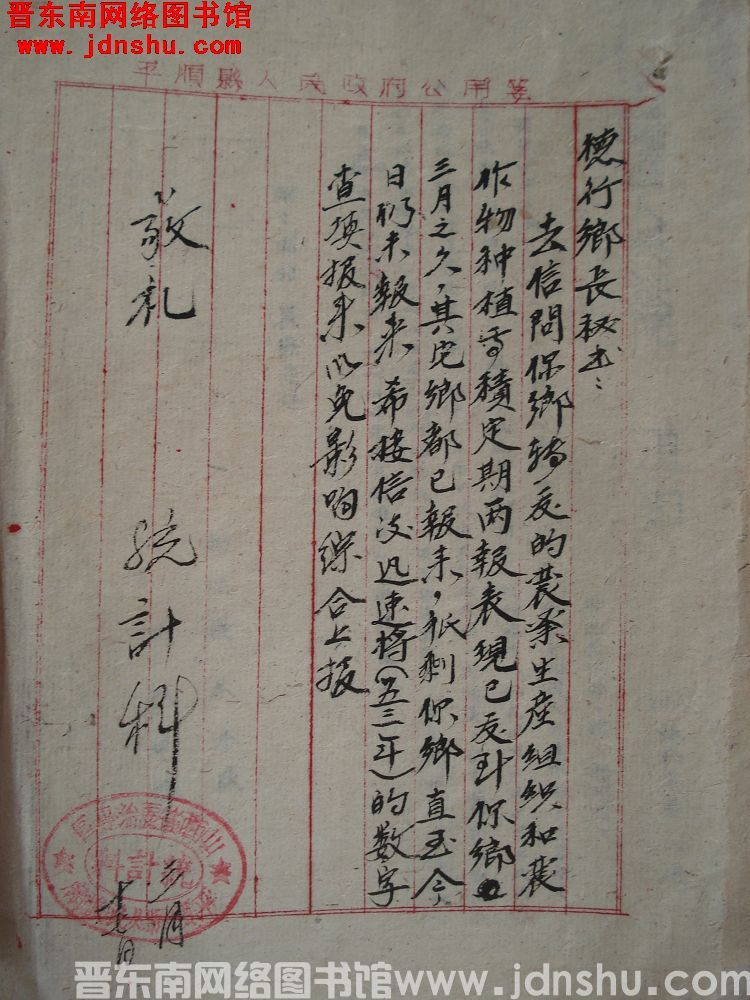 晋东南网络图书馆
www.jdnshu.com
平順縣人民政府公用箋
德行鄉長秘书：
去信問你鄉轉变的農業生産組織和農
作物种植面積定期两報表現已发到你鄉
三月之久，其它鄉都已報来，祇剩你鄉直至今
日仍未報来 希接信後迅速將（五三年）的数字
查填报来以免影响综合上报
敬礼
統計科
月
日
統計科
晋东南网络图书馆www.jdnshu.com